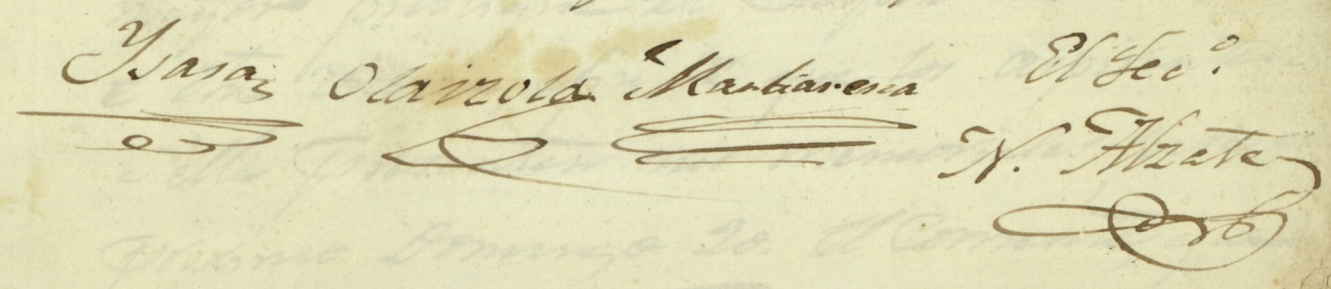 Ysasa Olaizola Mantiarena El Sec.º
N. Alzate